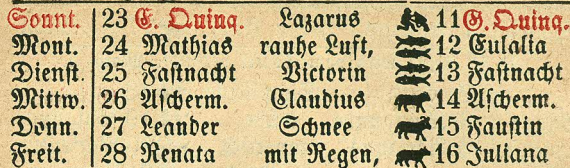 Sonnt. 23 E. Quinq. Lazarus 11 G. Quinq.
Mont. 24 Mathias rauhe Luft, 12 Eulalia
Dienst. 25 Fastnacht Victorin 13 Fastnacht
Mittw. 26 Ascherm. Claudius 14 Ascherm.
Donn. 27 Leander Schnee 15 Faustin
Freit. 28 Renata mit Regen, 16 Juliana